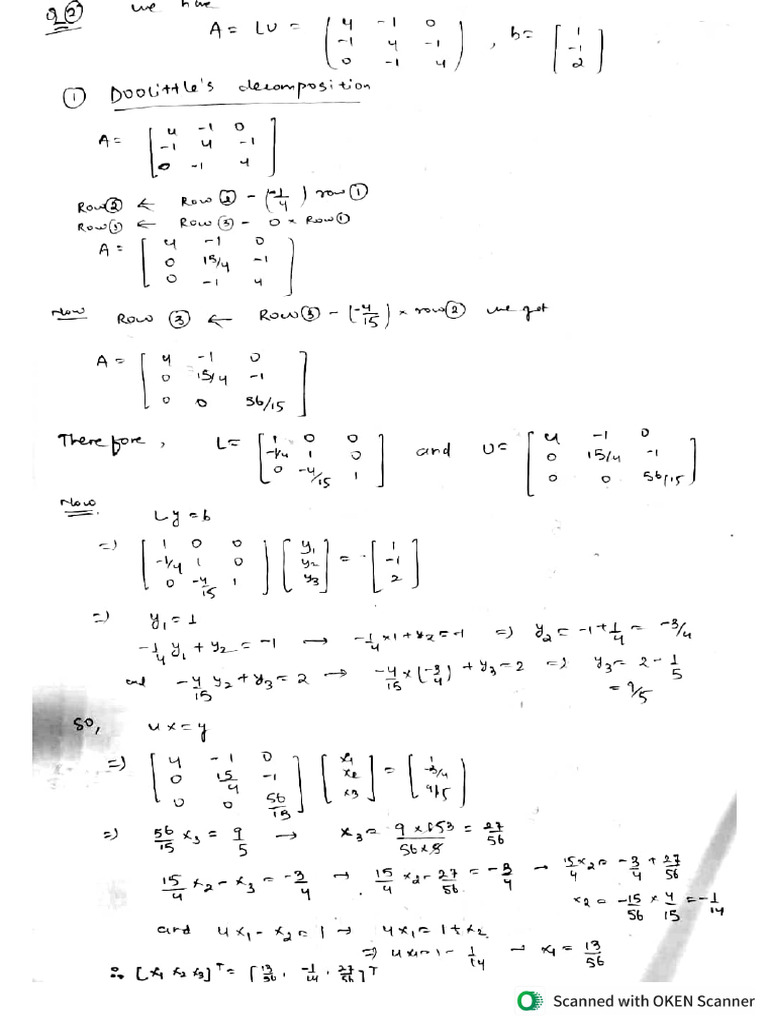 Q② we have
A = LU = [4 -1 0; -1 4 -1; 0 -1 4], b = [1; -1; 2]
① Doolittle's decomposition
A = [4 -1 0; -1 4 -1; 0 -1 4]
Row② ← Row② - (-1/4) row①
Row③ ← Row③ - 0 × Row①
A = [4 -1 0; 0 15/4 -1; 0 -1 4]
Now Row③ ← Row③ - (-4/15) × row② we get
A = [4 -1 0; 0 15/4 -1; 0 0 56/15]
Therefore, L = [1 0 0; -1/4 1 0; 0 -4/15 1] and U = [4 -1 0; 0 15/4 -1; 0 0 56/15]
Now. Ly = b
=) [1 0 0; -1/4 1 0; 0 -4/15 1] [y1; y2; y3] = [1; -1; 2]
=) y1 = 1
-1/4 y1 + y2 = -1 → -1/4 × 1 + y2 = -1 =) y2 = -1 + 1/4 = -3/4
and -4/15 y2 + y3 = 2 → -4/15 × (-3/4) + y3 = 2 =) y3 = 2 - 1/5
= 9/5
So, ux = y
=) [4 -1 0; 0 15/4 -1; 0 0 56/15] [x1; x2; x3] = [1; -3/4; 9/5]
=) 56/15 x3 = 9/5 → x3 = = 27/56
15/4 x2 - x3 = -3/4 → 15/4 x2 - 27/56 = -3/4 → 15/4 x2 = -3/4 + 27/56
x2 = -15/56 × 4/15 = -1/14
and 4x1 - x2 = 1 → 4x1 = 1 + x2
=) 4x1 = 1 - 1/14 → x1 = 13/56
∴ [x1 x2 x3]ᵀ = [13/56, -1/14, 27/56]ᵀ
Scanned with OKEN Scanner